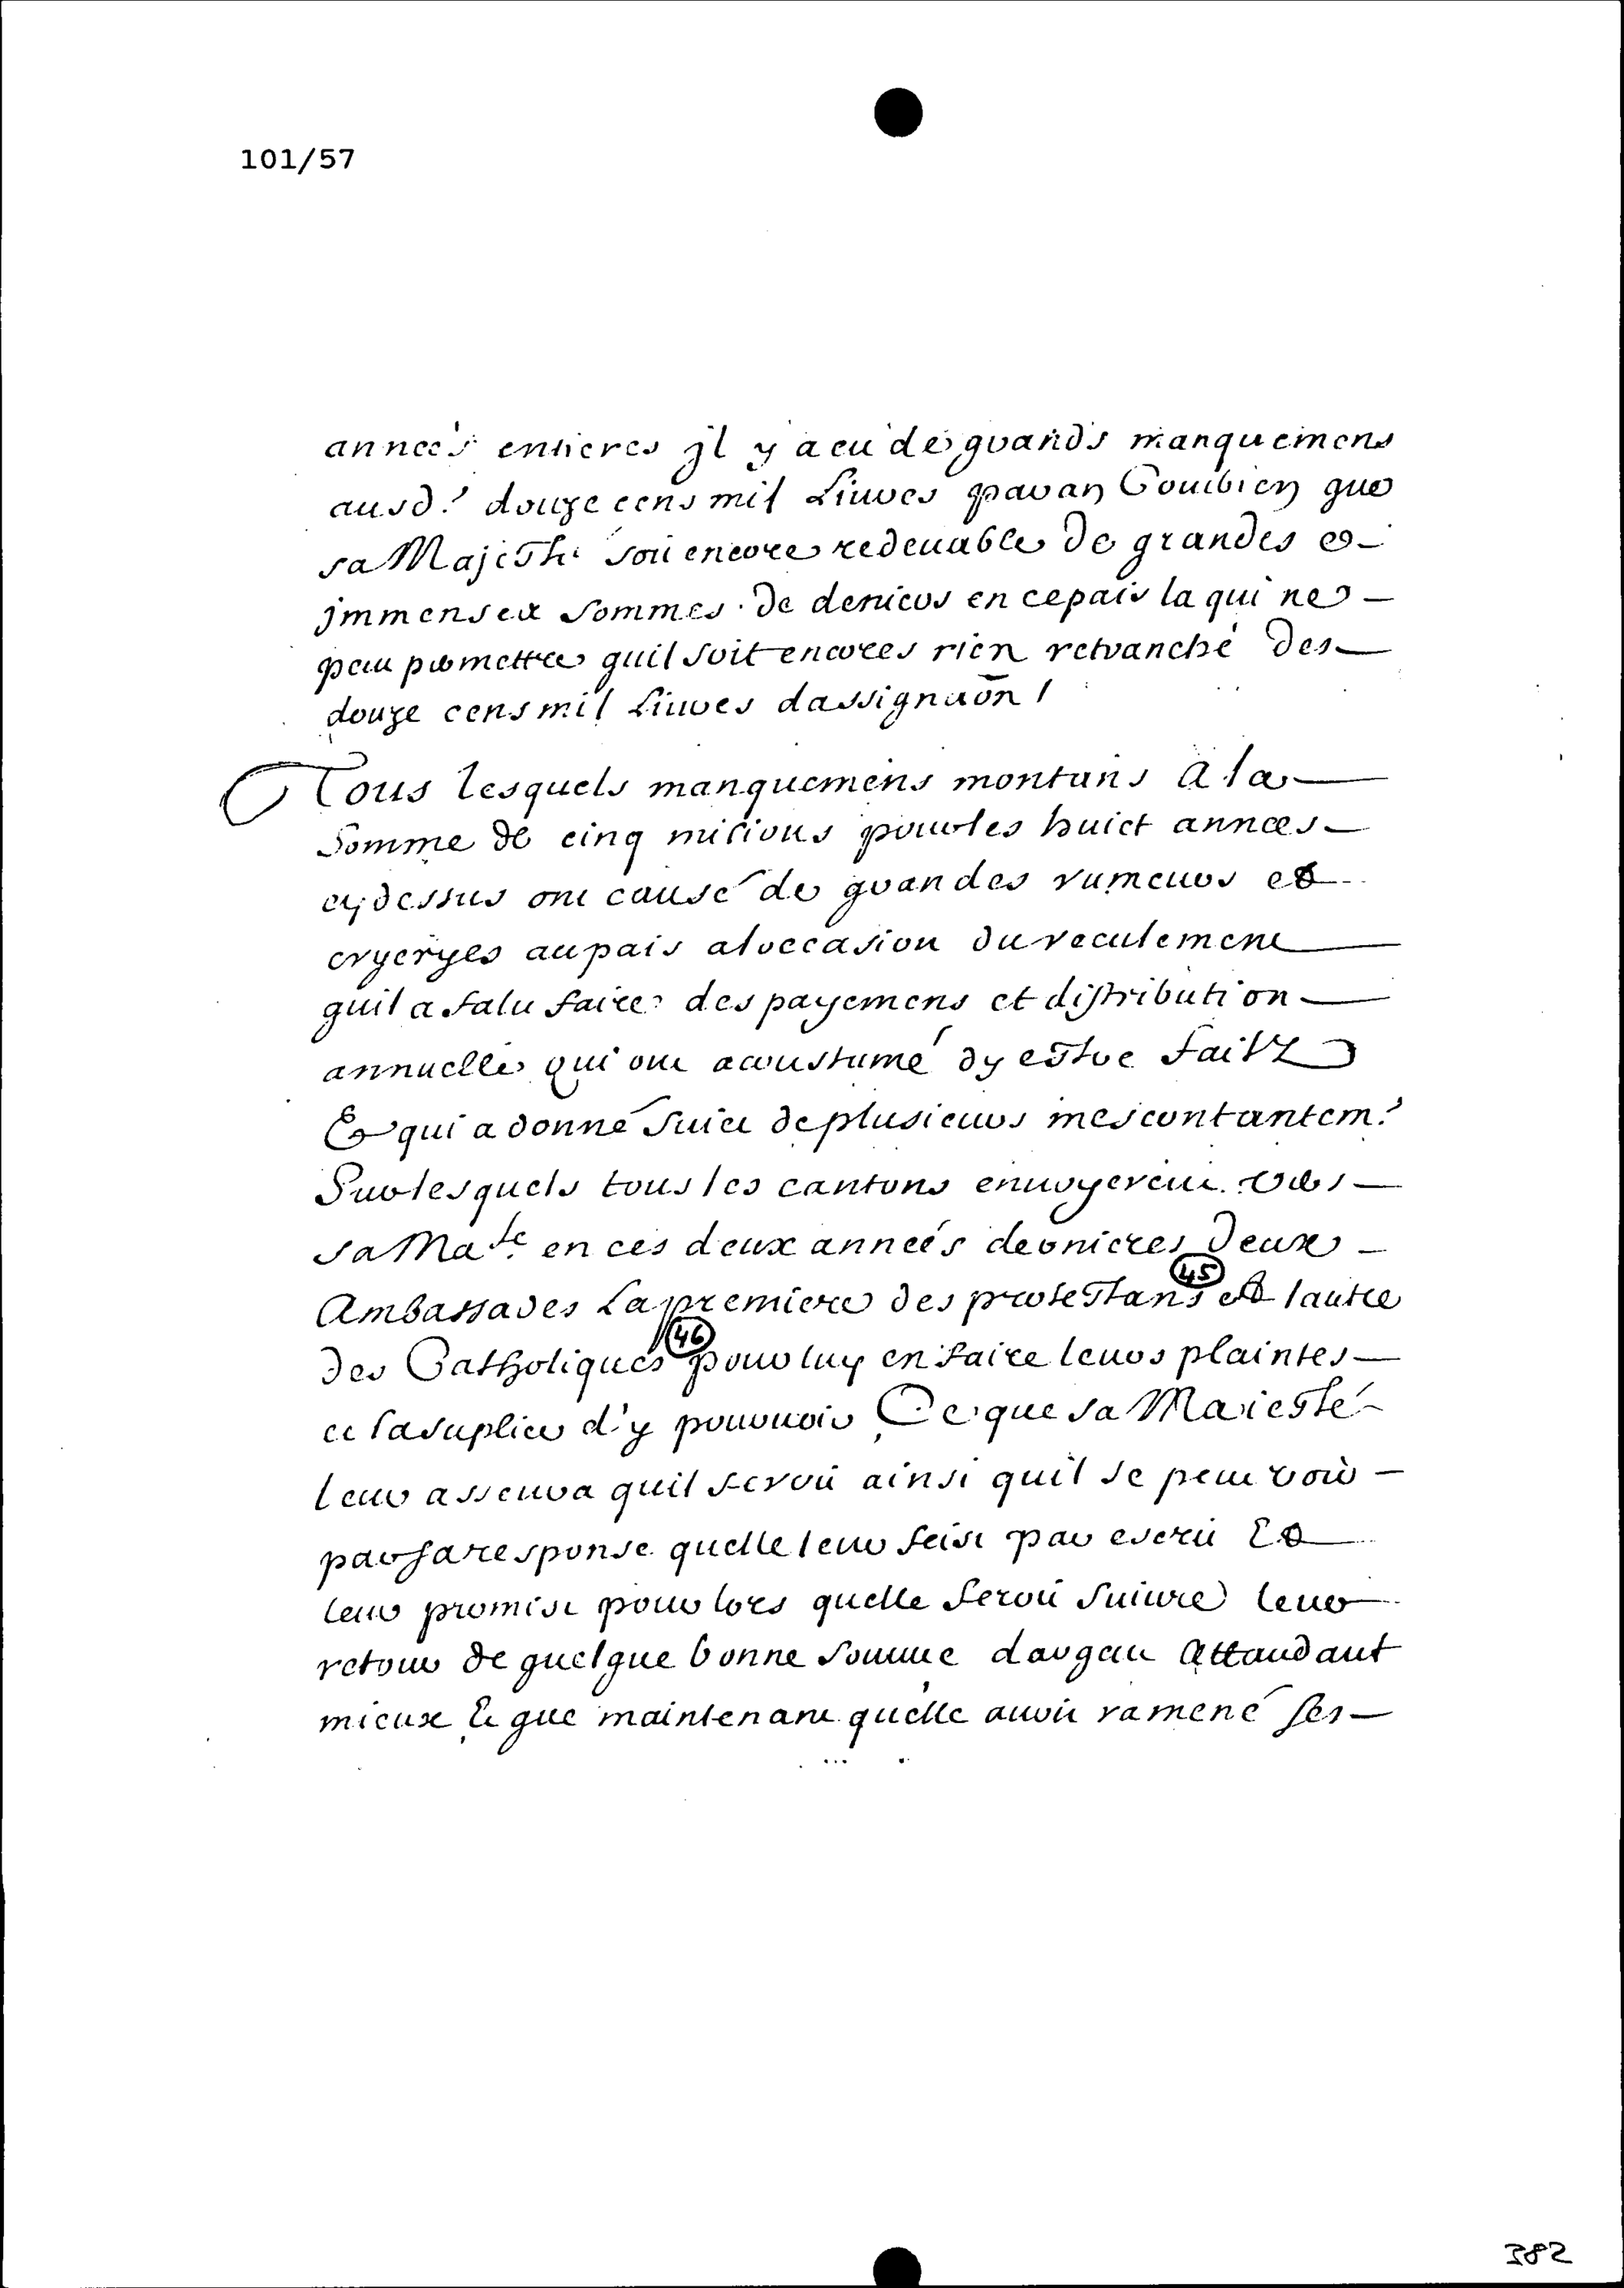 101/57
années entieres jl y a eu de grands manquemens
ausd. douze cens mil Liures paran Combien que
sa Majesté soit encore redeuable de grandes et
jmmenses sommes de deniers en ce pais la qui ne
peu permettre quil soit encores rien retranché des
douze cens mil Liures dassignaõn /
Tous lesquels manquemens montans a la
Somme de cinq milions pour les huict années
cy dessus ont causé de grandes rumeurs et
cryeryes au pais a loccasion du reculement
quil a falu faire des payemens et distribution
annuelle qui ont acoustumé dy estre faitz
Et qui a donné suiet de plusieurs mescontantem.
Sur lesquels tous les cantons enuoyerent vers
sa Mate. en ces deux années dernieres deux
Ambassades La premiere des protestans (45) et lautre
des Catholiques (46) pour luy en faire leurs plaintes
et la suplier d'y pouruoir Ce que sa Maiesté
leur asseura quil seroit ainsi quil se peut voir
par sa responce quelle leur feist par escrit Et
leur promist pour lors quelle feroit suiure leur
retour de quelque bonne somme dargent attandant
mieux Et que maintenant quelle auoit ramené ses
382